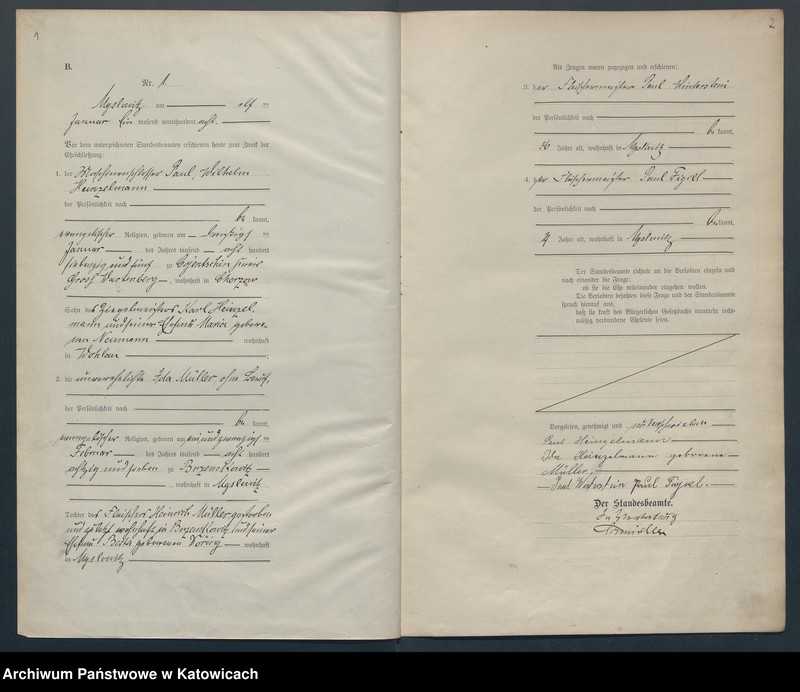 1
B.
Nr. 1.
Myslowitz am elf ten
Januar Ein tausend neunhundert acht.
Vor dem unterzeichneten Standesbeamten erschienen heute zum Zweck der
Eheschließung:
1. der Maschinenschlosser Paul, Wilhelm
Heinzelmann
der Persönlichkeit nach
be kannt,
evangelischer Religion, geboren am dreißigsten
Januar des Jahres tausend acht hundert
siebenzig und fünf zu Kreis
Groß Wartenberg, wohnhaft in Chorzow
Sohn des Ziegelmeisters Karl Heinzel-
mann und seiner Ehefrau Maria gebore-
nen Neumann wohnhaft
in Wohlau.
2. die unverehelichte Ida Müller ohne Beruf,
der Persönlichkeit nach
be kannt,
evangelischer Religion, geboren am einundzwanzigsten
Februar des Jahres tausend acht hundert
achtzig und sieben zu
, wohnhaft in Myslowitz
Tochter des Fleischers Heinrich Müller gestorben
und zuletzt wohnhaft in und seiner
Ehefrau Berta geborenen wohnhaft
in Myslowitz
2
Als Zeugen waren zugezogen und erschienen:
3. der Fleischermeister Paul Winterstein
der Persönlichkeit nach
be kannt,
36 Jahre alt, wohnhaft in Myslowitz
4. der Fleischermeister Paul
der Persönlichkeit nach
be kannt,
Jahre alt, wohnhaft in Myslowitz
Der Standesbeamte richtete an die Verlobten einzeln und
nach einander die Frage:
ob sie die Ehe miteinander eingehen wollen.
Die Verlobten bejahten diese Frage und der Standesbeamte
sprach hierauf aus,
daß sie kraft des Bürgerlichen Gesetzbuchs nunmehr recht-
mäßig verbundene Eheleute seien.
Vorgelesen, genehmigt und unterschrieben
Paul Heinzelmann
Ida Heinzelmann geborene
Müller.
Paul Winterstein Paul
Der Standesbeamte.
In Vertretung
Archiwum Państwowe w Katowicach